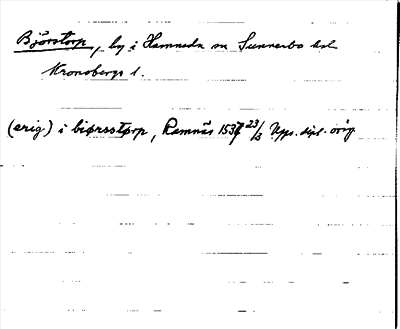 Björstorp, by i Hamneda sn Sunnerbo hd
Kronobergs l.
(orig) i biørsstørp, Ramnäs 1537 23/3 Upps. dipl. orig